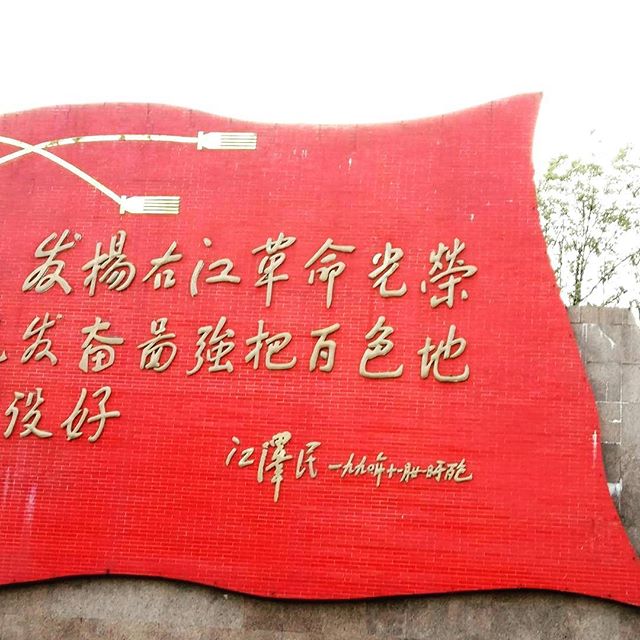 发揚右江革命光榮
发奋啚強把百色地
设好
江澤民 一九九〇年十一月廿一日于百色